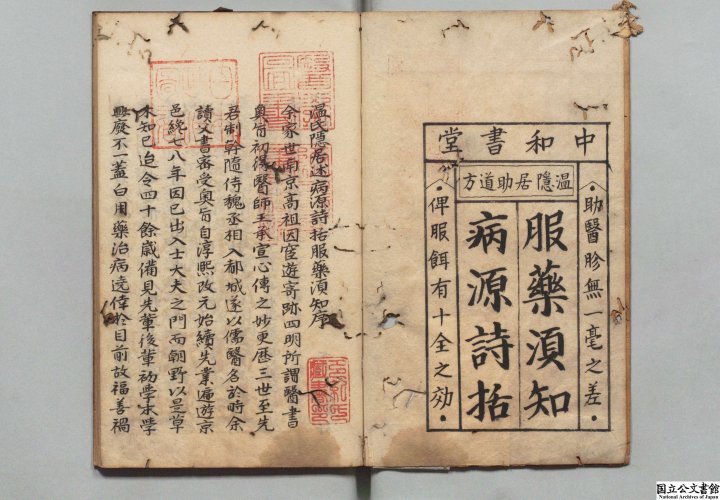 中和書堂
温隱居助道方
助醫眕無一毫之差
服藥須知
病源詩括
俾服餌有十全之効
温氏隱居述病源詩括服藥須知序
余家世南京高祖因宦遊寄跡四明所謂醫書
奥旨初得醫師王承宣心傳之妙更歷三世至先
君制幹隨侍魏丞相入都城遂以儒醫名於時余
讀父書密受奥旨自淳熙改元始續先業遍遊京
邑終七八年因已出入士大夫之門而朝野以是草
木知已迨今四十餘歲備見先輩後輩初學末學
興廢不一蓋自用藥治病造偉於目前故福善禍
国立公文書館
National Archives of Japan